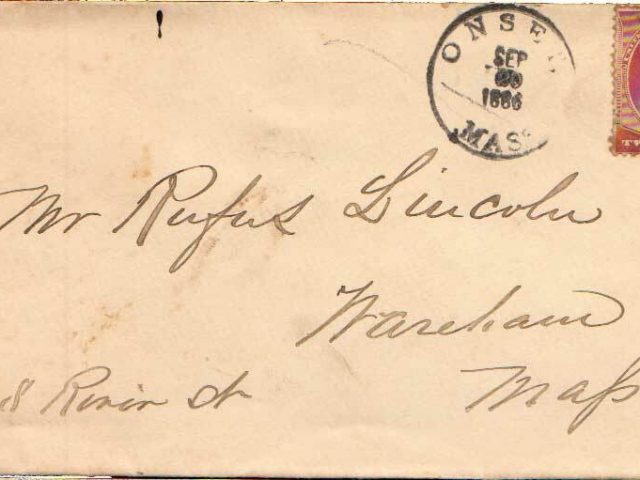 ONSET
SEP
20
1886
MASS
Mr Rufus Lincoln
Wareham
Mass
8 River St